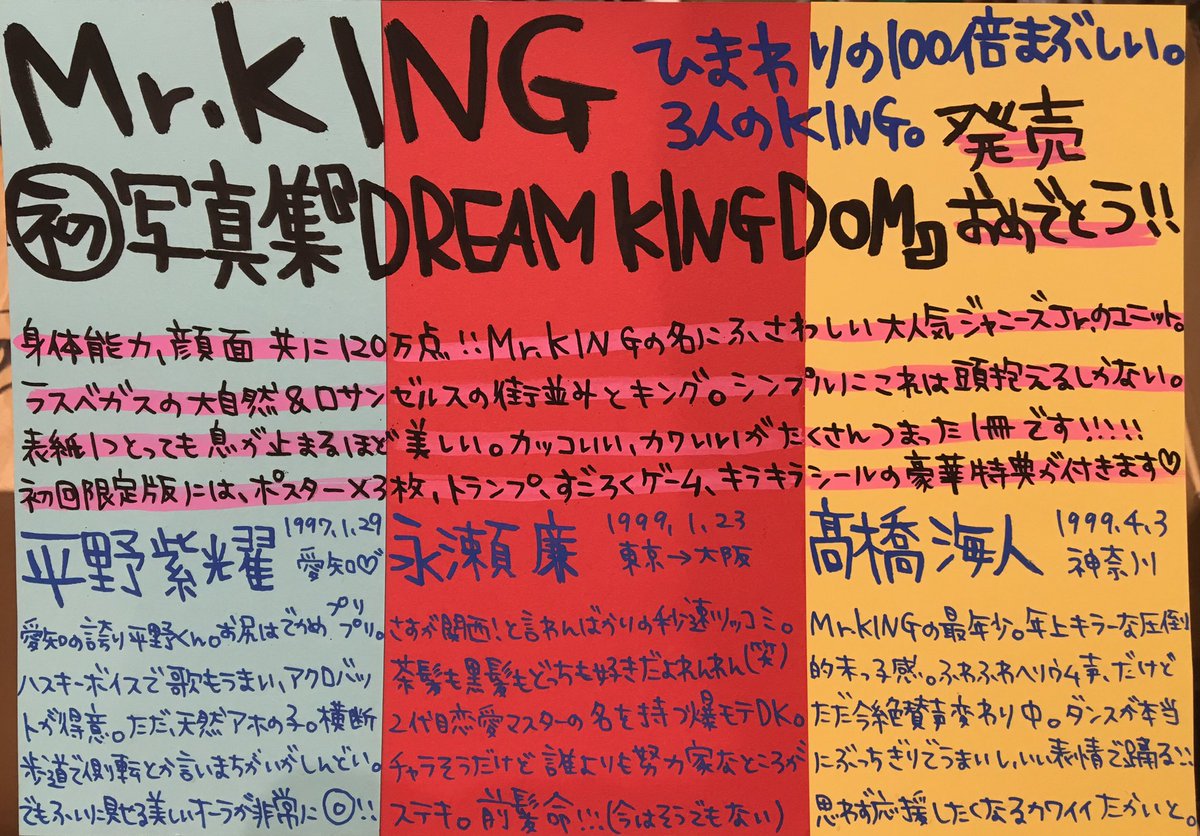 Mr.KING
ひまわりの100倍まぶしい。
3人のKING。
初の写真集『DREAM KINGDOM』
発売
おめでとう!!
身体能力、顔面 共に120万点!!Mr.KINGの名にふさわしい大人気ジャニーズJr.のユニット。
ラスベガスの大自然&ロサンゼルスの街並みとキング。シンプルにこれは頭抱えるしかない。
表紙1つとっても息が止まるほど美しい。カッコいい、カワいいがたくさんつまった1冊です!!!!!
初回限定版には、ポスター×3枚、トランプ、すごろくゲーム、キラキラシールの豪華特典が付きます♡
平野紫耀
1997.1.29
愛知♡
愛知の誇り平野くん。お尻はでかめプリプリ。
ハスキーボイスで歌もうまい、アクロバッ
トが得意。ただ、天然アホの子。横断
歩道で側転とか言いまちがいがしんどい。
でもふいに見せる美しいオーラが非常に◎!!
永瀬廉
1999.1.23
東京→大阪
さすが関西!と言わんばかりの秒速ツッコミ。
茶髪も黒髪もどっちも好きだよれんれん(笑)
2代目恋愛マスターの名を持つ爆モテDK。
チャラそうだけど誰よりも努力家なところが
ステキ。前髪命!!!(今はそうでもない)
髙橋海人
1999.4.3
神奈川
Mr.KINGの最年少。年上キラーな圧倒
的末っ子感。ふわふわヘリウム声、だけど
ただ今絶賛声変わり中。ダンスが本当
にぶっちぎりでうまいし、いい表情で踊る!!
思わず応援したくなるカワイイたかいと。